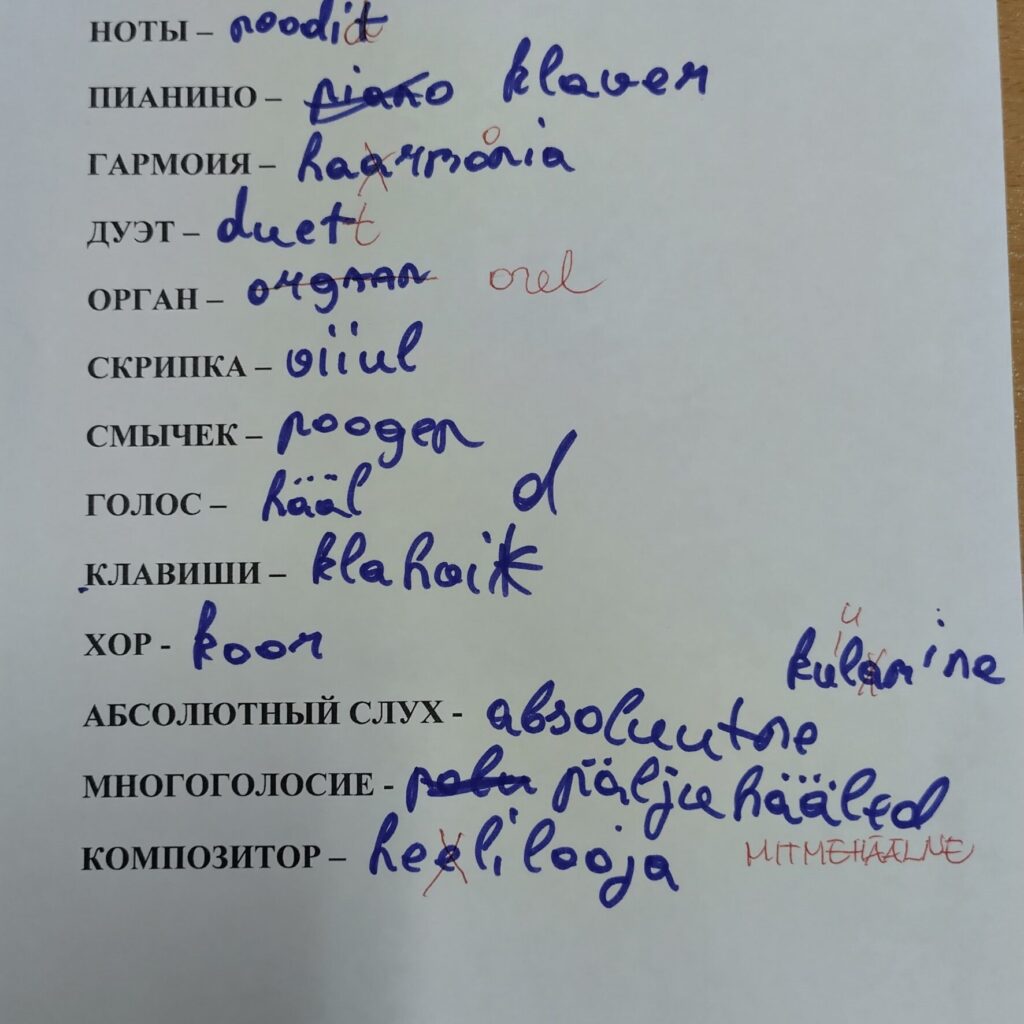 НОТЫ – noodid
ПИАНИНО – piano klaver
ГАРМОИЯ – haarmoonia
ДУЭТ – duett
ОРГАН – orgaan orel
СКРИПКА – viiul
СМЫЧЕК – poogen
ГОЛОС – hääl
d
КЛАВИШИ – klahvi
ХОР - koor
АБСОЛЮТНЫЙ СЛУХ - absoluutne
МНОГОГОЛОСИЕ - pälju hääled
КОМПОЗИТОР – heelilooja MITMEHÄÄLNE